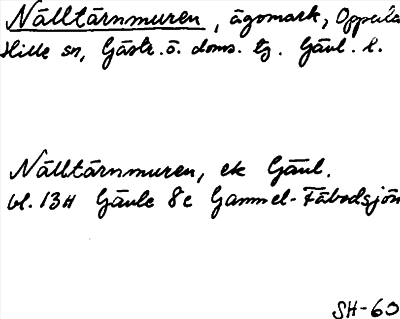 Nälltärnmuren, ägomark, Oppala
Hille sn, Gästr. ö. doms. tg. Gävl. l.
Nälltärnmuren, ek Gävl.
bl. 13H Gävle 8c Gammel-Fäbodsjön
SH-69